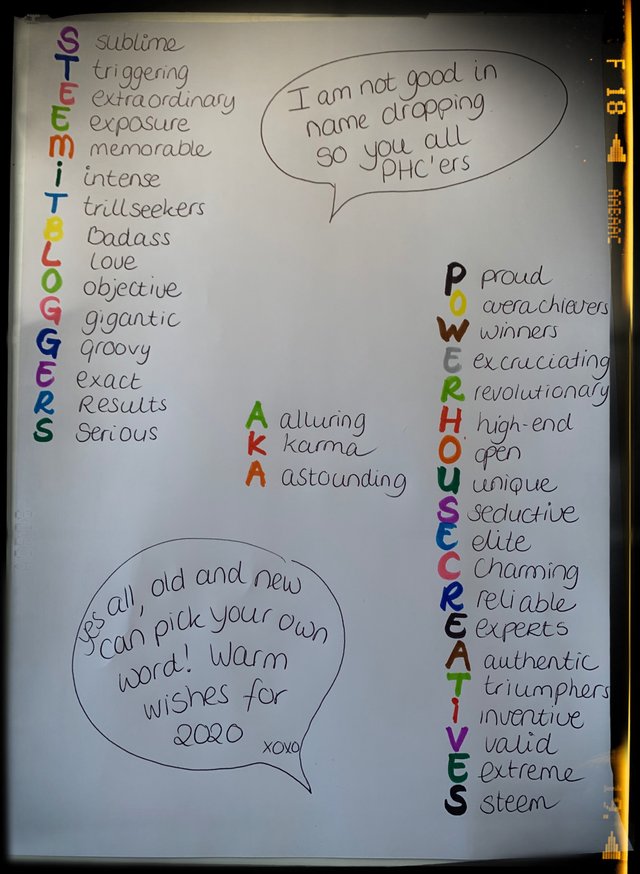 S sublime
T triggering
E extraordinary
E exposure
m memorable
i intense
T trillseekers
B Badass
L love
O objective
G gigantic
G groovy
E exact
R Results
S Serious
I am not good in
name dropping
so you all
PHC'ers
A alluring
K karma
A astounding
P proud
O averachievers
W winners
E excruciating
R revolutionary
H high-end
O open
U unique
S seductive
E elite
C Charming
R reliable
E experts
A authentic
T triumphers
i inventive
V valid
E extreme
S steem
yes all, old and new
can pick your own
word! Warm
wishes for
2020 xoxo
F 18
AABAAC